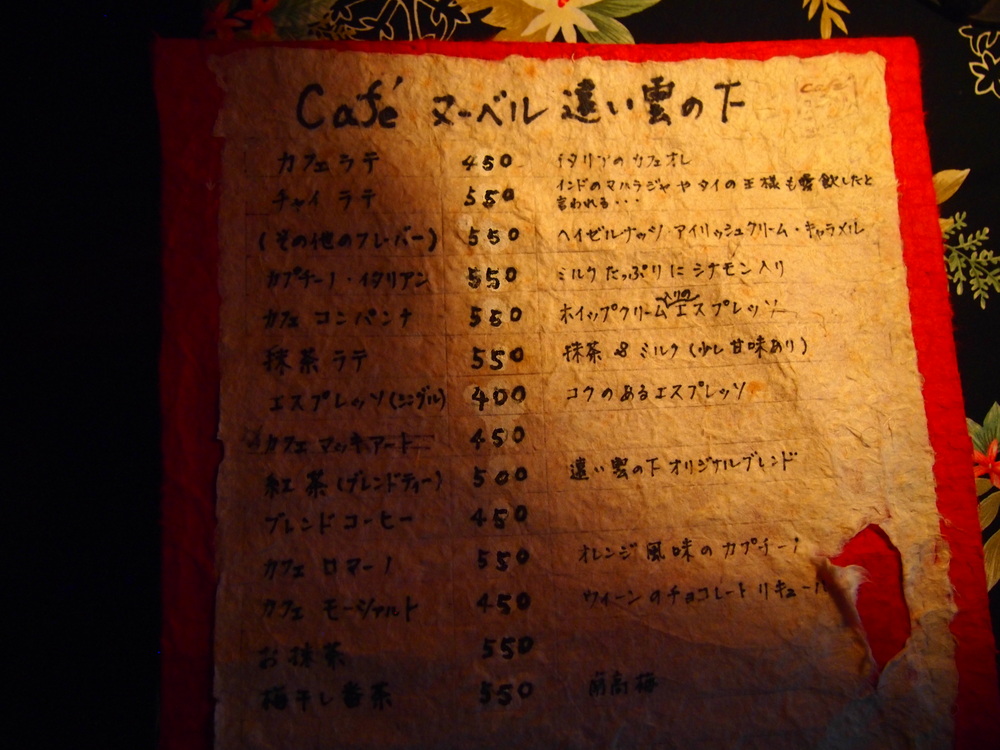 Café ヌーベル 遠い雲の下
Café
カフェ ラテ 450 イタリアのカフェオレ
チャイ ラテ 550 インドのマハラジャやタイの王様も愛飲したと
言われる・・・
(その他のフレーバー) 550 ヘイゼルナッツ・アイリッシュクリーム・キャラメル
カプチーノ・イタリアン 550 ミルクたっぷりにシナモン入り
カフェ コンパンナ 550 ホイップクリーム入りのエスプレッソ
抹茶ラテ 550 抹茶 & ミルク(少し甘味あり)
エスプレッソ(シングル) 400 コクのあるエスプレッソ
カフェ マッキアート 450
紅茶(ブレンドティー) 500 遠い雲の下 オリジナルブレンド
ブレンドコーヒー 450
カフェ ロマーノ 550 オレンジ風味のカプチーノ
カフェ モーツァルト 450 ウィーンのチョコレートリキュール
お抹茶 550
梅干し番茶 550 南高梅